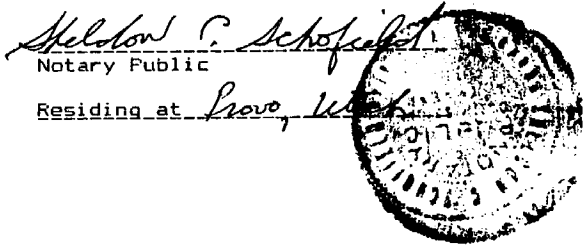 Sheldon C. Schofield
Notary Public
Residing at Provo, Utah
NOTARY